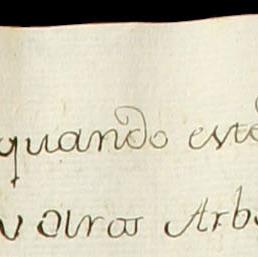 quando este
varos Arb